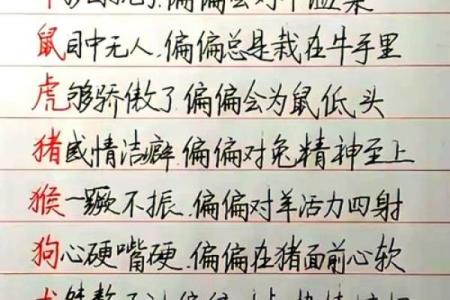 偏偏会对
鼠目中无人.偏偏总是栽在牛手里
虎够骄傲了.偏偏会为鼠低头
猪感情洁癖.偏偏对兔精神至上
猴一蹶不振.偏偏对羊活力四射
狗心硬嘴硬.偏偏在猪面前心软